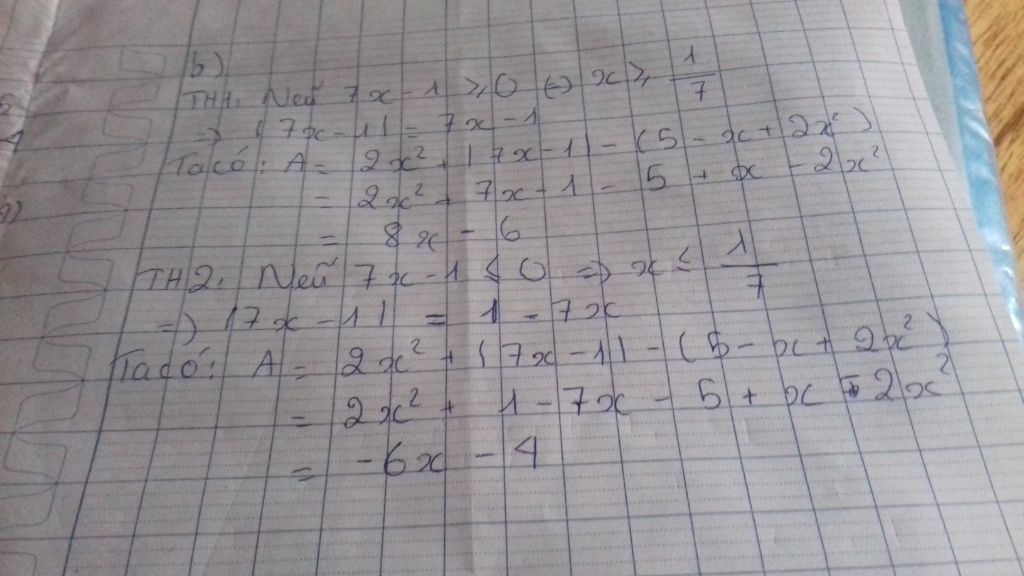 b)
TH1: Nếu 7x - 1 ≥ 0 (=) x ≥ 1/7
=) |7x - 1| = 7x - 1
Ta có: A = 2x² + |7x - 1| - (5 - x + 2x²)
= 2x² + 7x - 1 - 5 + x - 2x²
= 8x - 6
TH2: Nếu 7x - 1 ≤ 0 =) x ≤ 1/7
=) |7x - 1| = 1 - 7x
Ta có: A = 2x² + |7x - 1| - (5 - x + 2x²)
= 2x² + 1 - 7x - 5 + x - 2x²
= -6x - 4